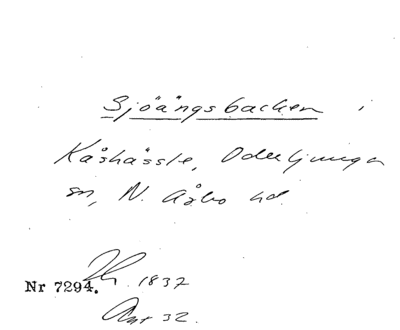 Sjöängsbacken i
Kåshässle, Oderljunga
sn, N. Åsbo hd.
Nr 7294. 1837
32.